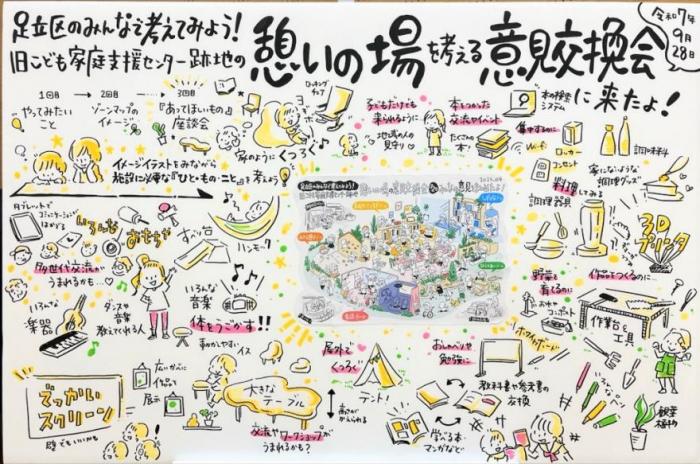 足立区のみんなで考えてみよう!
旧こども家庭支援センター跡地の
憩いの場を考える意見交換会
に来たよ!
令和7年
9月
28日
1回目
やってみたい
こと
2回目
ゾーンマップの
イメージ
3回目
『あってほしいもの』
座談会
イメージイラストをみながら
施設に必要な『ひと・もの・こと』を考えよう!
ロッキング
チェア
家のようにくつろぐ
子どもだけでも
来られるように
地域の人の
見守り
本をつかった
交流やイベント
たくさんの
本!
本の検索
システム
集中するのに
Wi-Fi
ロッカー
コンセント
調味料
家にないような
調理グッズ
料理
調理器具
3D
プリンタ
タブレットで
いろんな
おもちゃ
すべり台
ハンモック
多世代交流が
うまれるかも…
いろんな
楽器
ダンスや
音楽
教えてくれる人
いろんな
音楽
体をうごかす!!
野菜を
育てるのに
コンポスト
作品をつくるのに
作業台と
工具
ホワイトボード
でっかい
スクリーン
誰でもいいかも
作品を
展示
動かしやすい
イス
大きな
テーブル
高さが
かえられる
交流やワークショップが
うまれるかも?
屋外で
くつろぐ
テント!
おしゃべりや
勉強に
教科書や参考書の
交換
学べる本・
マンガなど
観葉
植物